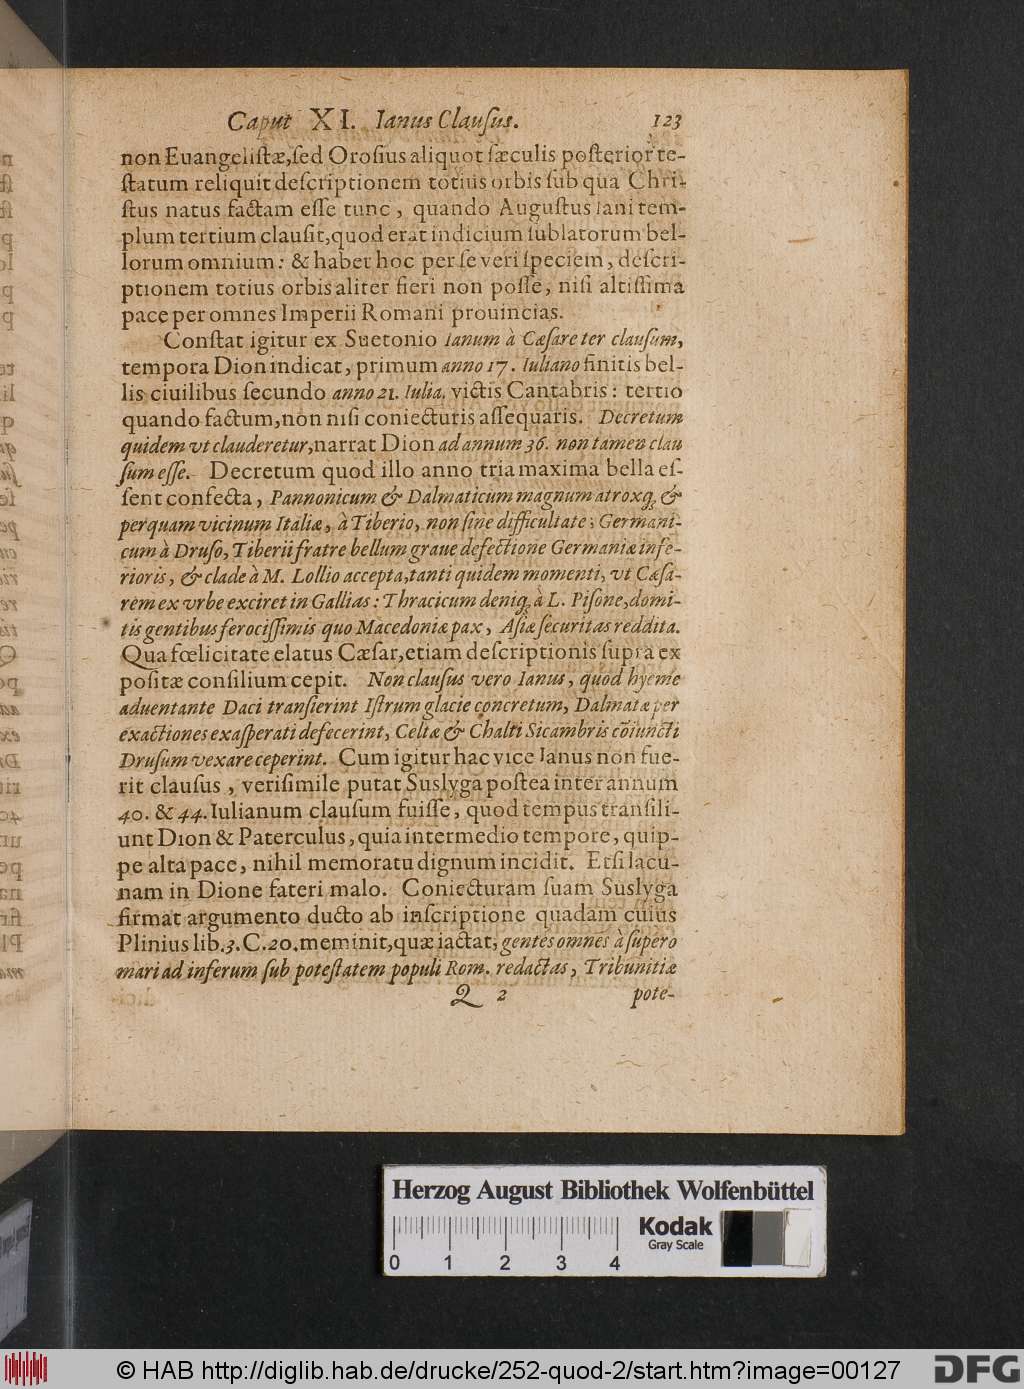 Caput XI. Ianus Clauſus. 123
non Euangeliſtæ, ſed Oroſius aliquot ſæculis poſterior te-
ſtatum reliquit deſcriptionem totius orbis ſub qua Chri-
ſtus natus factam eſſe tunc, quando Auguſtus Iani tem-
plum tertium clauſit, quod erat indicium ſublatorum bel-
lorum omnium: & habet hoc per ſe veri ſpeciem, deſcri-
ptionem totius orbis aliter fieri non poſſe, niſi altiſſima
pace per omnes Imperii Romani prouincias.
Conſtat igitur ex Suetonio Ianum à Cæſare ter clauſum,
tempora Dion indicat, primum anno 17. Iuliano finitis bel-
lis ciuilibus ſecundo anno 21. Iulia. victis Cantabris: tertio
quando factum, non niſi coniecturis aſſequaris. Decretum
quidem vt clauderetur, narrat Dion ad annum 36. non tamen clau
ſum eſſe. Decretum quod illo anno tria maxima bella eſ-
ſent confecta, Pannonicum & Dalmaticum magnum atroxq; &
perquam vicinum Italiæ, à Tiberio, non ſine difficultate; Germani-
cum à Druſo, Tiberii fratre bellum graue defectione Germaniæ infe-
rioris, & clade à M. Lollio accepta, tanti quidem momenti, vt Cæſa-
rem ex vrbe exciret in Gallias: Thracicum deniq; à L. Piſone, domi-
tis gentibus ferociſſimis quo Macedoniæ pax, Aſiæ ſecuritas reddita.
Qua fœlicitate elatus Cæſar, etiam deſcriptionis ſupra ex
poſitæ conſilium cepit. Non clauſus vero Ianus, quod hyeme
aduentante Daci tranſierint Iſtrum glacie concretum, Dalmatæ per
exactiones exaſperati defecerint, Celtæ & Chalti Sicambris cõiuncti
Druſum vexare ceperint. Cum igitur hac vice Ianus non fue-
rit clauſus, veriſimile putat Suslyga poſtea inter annum
40. & 44. Iulianum clauſum fuiſſe, quod tempus tranſili-
unt Dion & Paterculus, quia intermedio tempore, quip-
pe alta pace, nihil memoratu dignum incidit. Etſi lacu-
nam in Dione fateri malo. Coniecturam ſuam Suslyga
firmat argumento ducto ab inſcriptione quadam cuius
Plinius lib. 3. C. 20. meminit, quæ iactat, gentes omnes à ſupero
mari ad inferum ſub poteſtatem populi Rom. redactas, Tribunitiæ
Q 2 pote-
Herzog August Bibliothek Wolfenbüttel
Kodak
Gray Scale
0 1 2 3 4
© HAB http://diglib.hab.de/drucke/252-quod-2/start.htm?image=00127
DFG